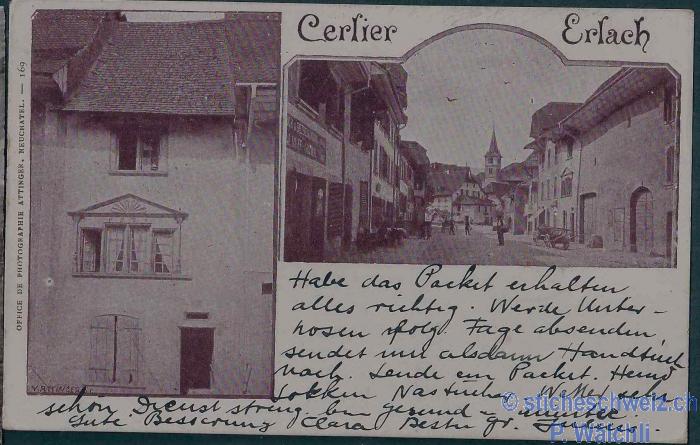 Cerlier Erlach
OFFICE DE PHOTOGRAPHIE ATTINGER, NEUCHATEL. — 169
V. ATTINGER
Habe das Packet erhalten
alles richtig. Werde Unter-
hosen folg. Tage absenden
sendet mir alsdann Handtuch
nach. Sende ein Packet. Hemd
Socken Nastücher
schön Dienst streng bin gesund u.
Gute Besserung Clara Beste Gr.
© sticheschweiz.ch
P. Walchli